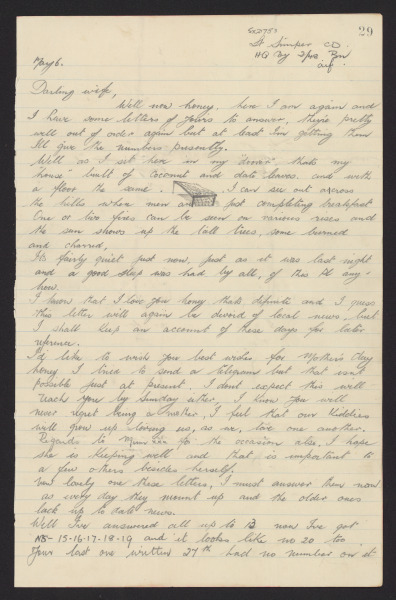 29
SX2757
St Simper CD.
HQ Coy 2/48 Bn
aif.
May 6.
Darling wife,
Well now honey, here I am again and
I have some letters of yours to answer, they're pretty
well out of order again but at least I'm getting them
I'll give the numbers presently.
Well as I sit here in my "dover" thats my
"house" built of coconut and date leaves. and with
a floor the same. I can see out across
the hills where men are just completing breakfast
One or two fires can be seen on various rises and
the sun shows up the tall trees, some burned
and charred.
Its fairly quiet just now, just as it was last night
and a good sleep was had by all, of this Pl any-
how.
I know that I love you honey thats definite and I guess
this letter will again be devoid of local news, but
I shall keep an account of these days for later
reference.
I'd like to wish you best wishes for Mother's day
honey I tried to send a telegram but that isnt
possible just at present. I dont expect this will
reach you by Sunday either, I know you will
never regret being a mother, I feel that our kiddies
will grow up loving us, as we, love one another.
Regards to Mum for the occasion also, I hope
she is keeping well and that is important to
a few others besides herself.
lovely one these letters, I must answer them now
as every day they mount up and the older ones
lack up to date news.
Well I've answered all up to 13 now I've got
N8- 15-16-17-18-19 and it looks like no 20 too.
Your last one written 27th had no number on it